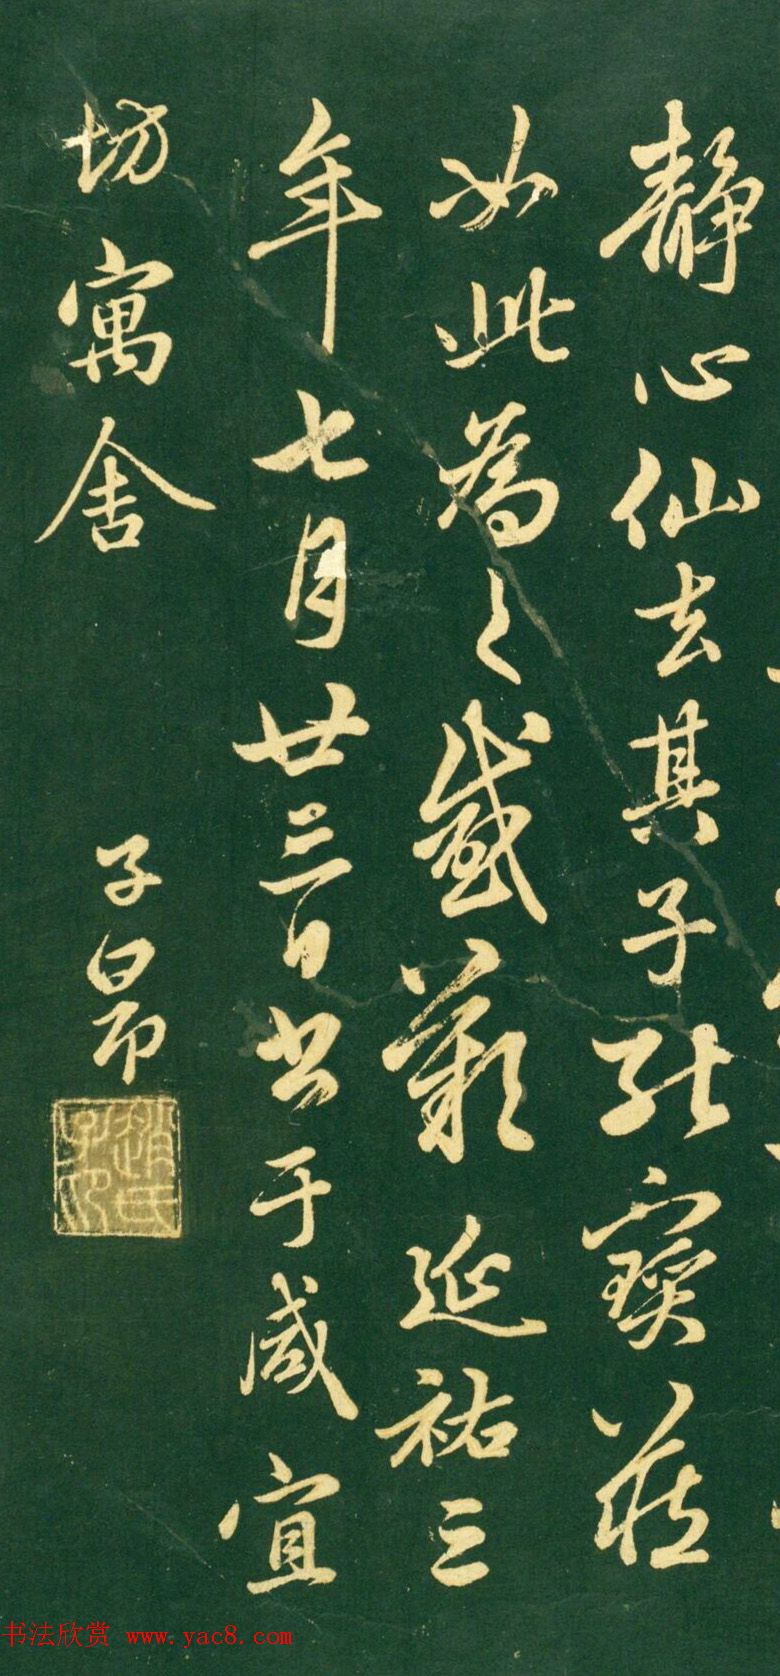 静心仙去其子能寳藏
如此為之感歎延祐三
年七月廿三日書于咸宜
坊寓舍 子昂
趙氏子昂
书法欣赏 www.yac8.com